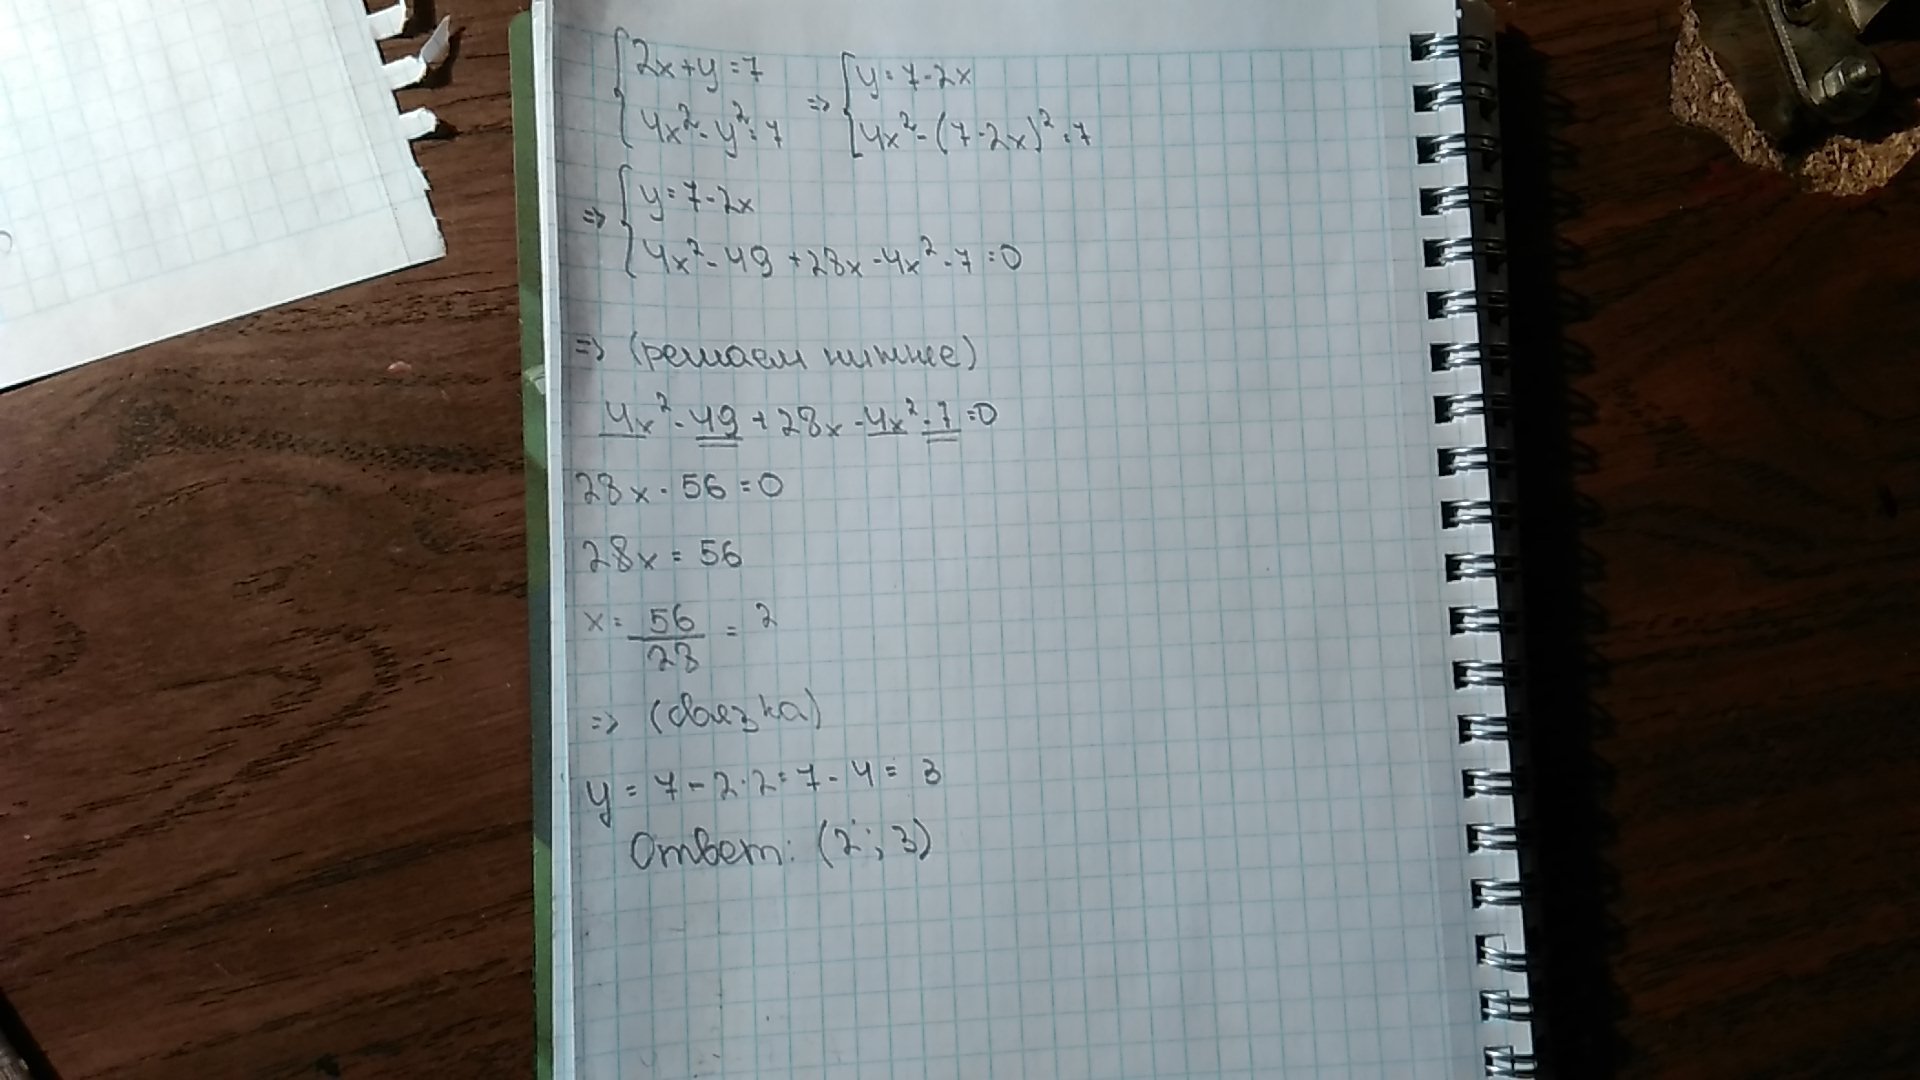 {2x+y=7
{4x²-y²=7
=> {y=7-2x
{4x²-(7-2x)²=7
=> {y=7-2x
{4x²-49+28x-4x²-7=0
=> (решаем нижнее)
4x²-49+28x-4x²-7=0
28x-56=0
28x=56
x=56/28=2
=> (связка)
y=7-2·2=7-4=3
Ответ: (2;3)